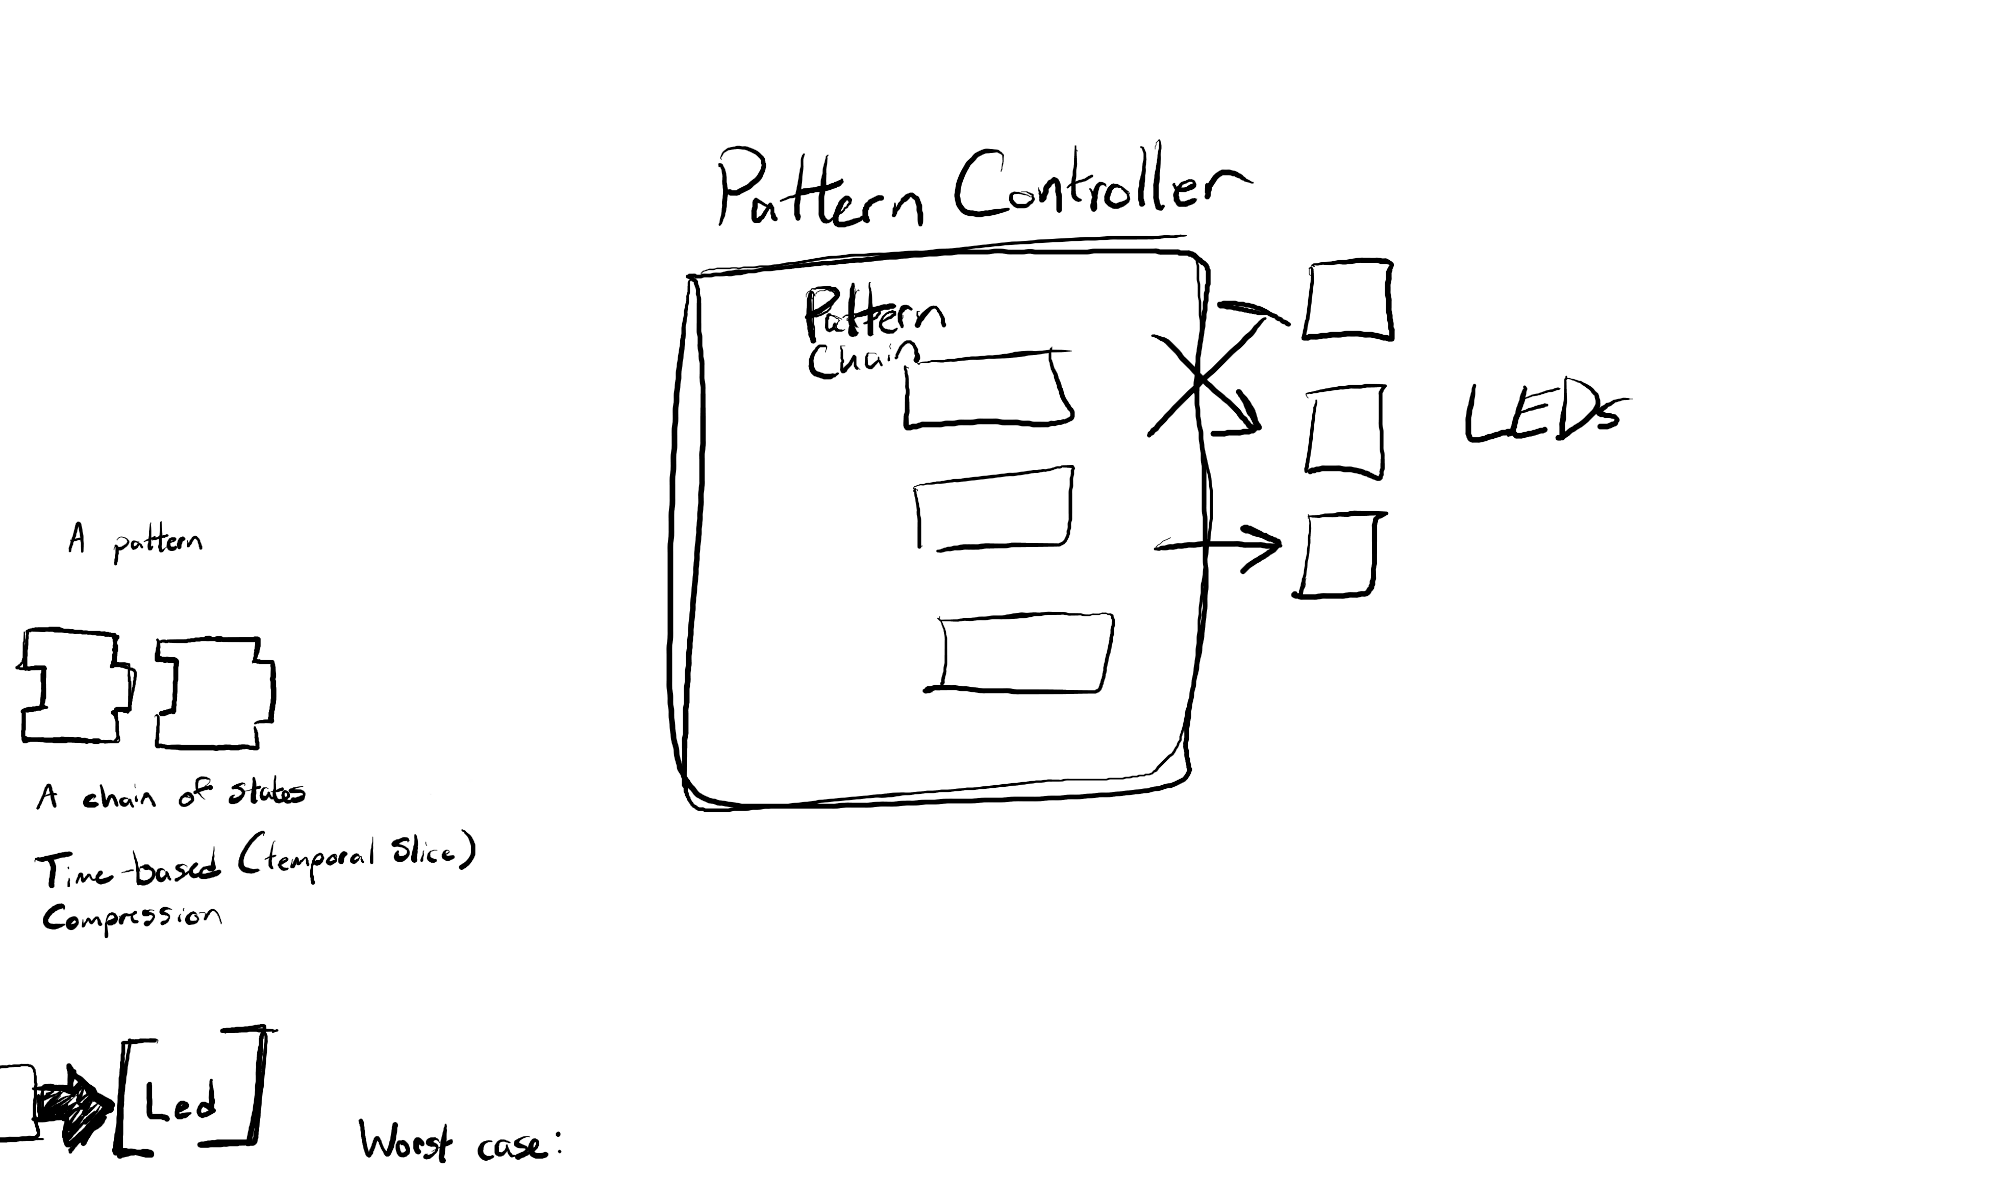 Pattern Controller
Pattern
Chain
LEDs
A pattern
A chain of states
Time-based (temporal slice)
Compression
Led
Worst case: